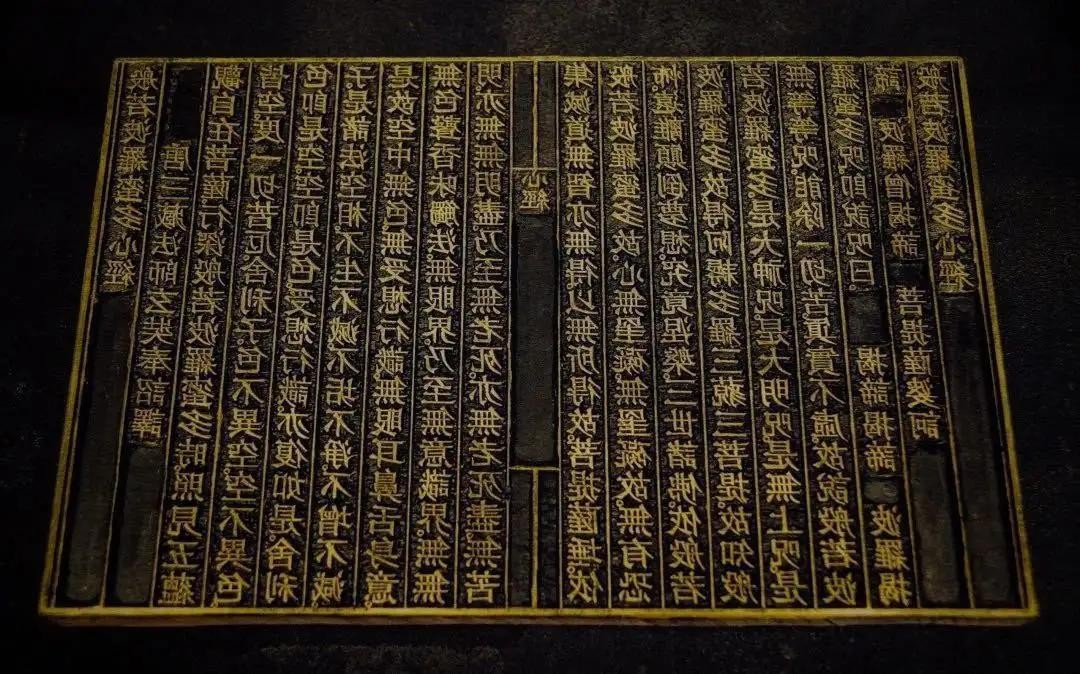 般若波羅蜜多心經
唐三藏法師玄奘奉詔譯
觀自在菩薩。行深般若波羅蜜多時。照見五蘊
皆空。度一切苦厄。舍利子。色不異空。空不異色。
色即是空。空即是色。受想行識。亦復如是。舍利
子。是諸法空相。不生不滅。不垢不淨。不增不減。
是故空中無色。無受想行識。無眼耳鼻舌身意。
無色聲香味觸法。無眼界。乃至無意識界。無無
明。亦無無明盡。乃至無老死。亦無老死盡。無苦
心經
集滅道。無智亦無得。以無所得故。菩提薩埵。依
般若波羅蜜多故。心無罣礙。無罣礙故。無有恐
怖。遠離顛倒夢想。究竟涅槃。三世諸佛。依般若
波羅蜜多故。得阿耨多羅三藐三菩提。故知般
若波羅蜜多。是大神呪。是大明呪。是無上呪。是
無等等呪。能除一切苦。眞實不虛。故說般若波
羅蜜多呪。即說呪曰。 揭諦揭諦 波羅揭
諦 波羅僧揭諦 菩提薩婆訶
般若波羅蜜多心經